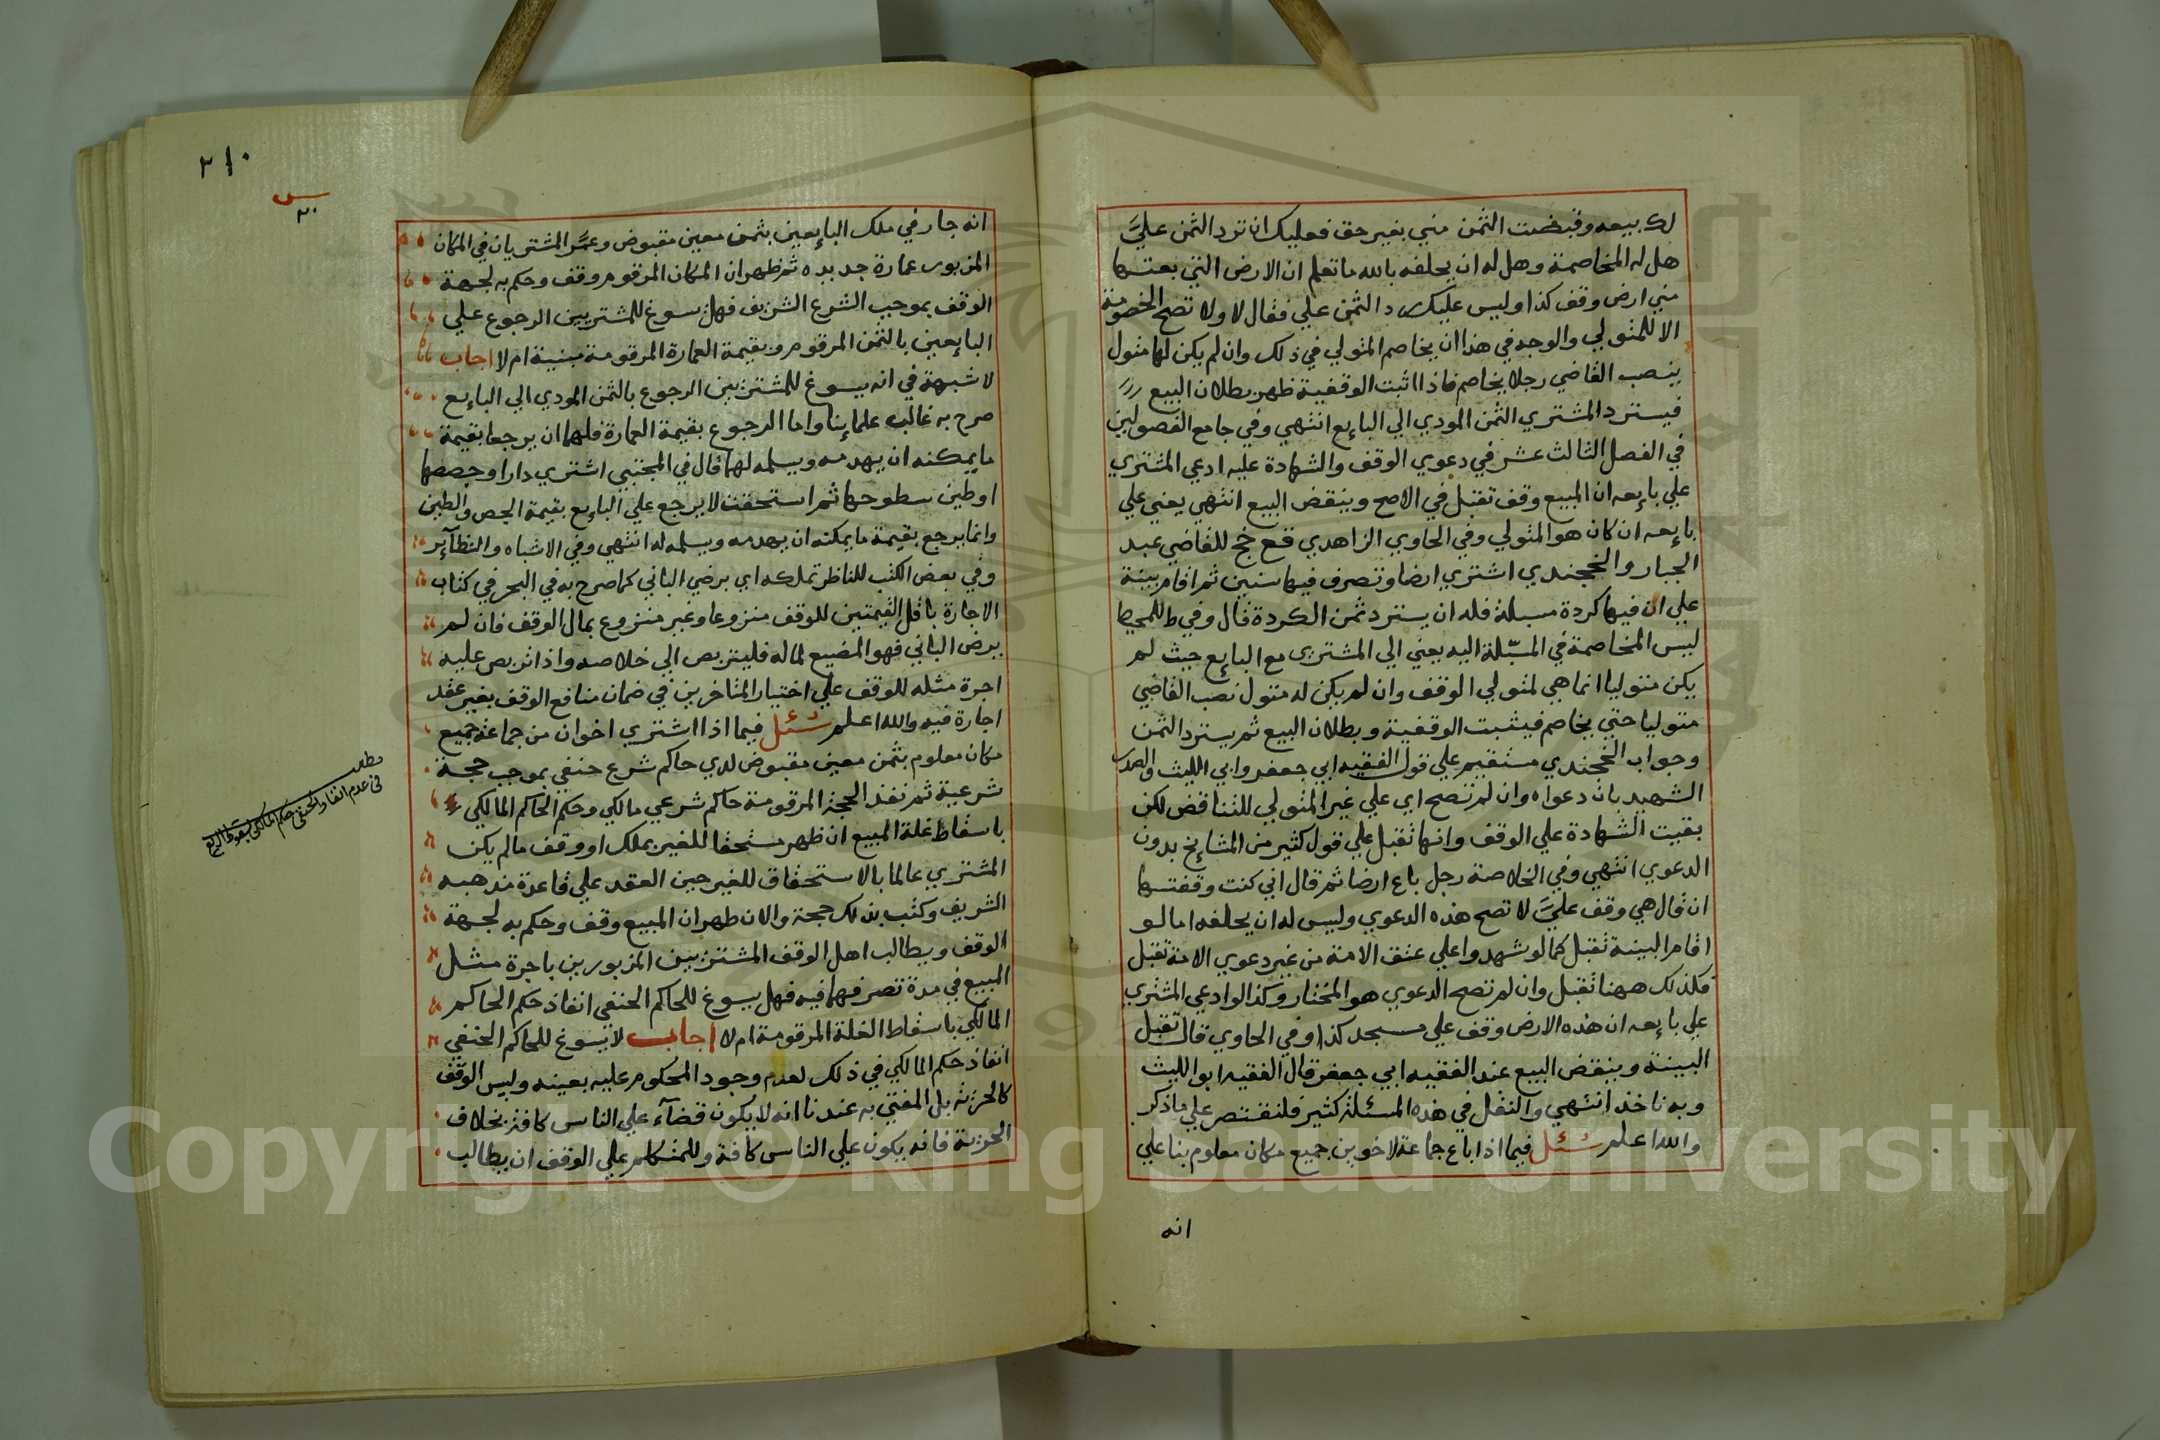 لك بيعه وقبضت الثمن مني بغير حق فعليك ان ترد الثمن عليَّ
هل له المخاصمة وهل له ان يحلفه بالله ما تعلم ان الارض التي بعتها
مني ارض وقف كذا وليس عليك رد الثمن علي فقال لا ولا تصح الخصومة
الا للمتولي والوجه في هذا ان يخاصم المتولي في ذلك وان لم يكن لها متول
ينصب القاضي رجلا يخاصم فاذا اثبت الوقفية ظهر بطلان البيع
فيسترد المشتري الثمن المودي الي البايع انتهي وفي جامع الفصولين
في الفصل الثالث عشر في دعوي الوقف والشهادة عليه ادعي المشتري
علي بايعه ان المبيع وقف تقبل في الاصح وينقض البيع انتهي يعني علي
بايعه ان كان هو المتولي وفي الحاوي الزاهدي قع خج للقاضي عبد
الجبار والخجندي اشتري ارضا وتصرف فيها سنين ثم اقام بينة
علي ان فيها كردة مسبلة فله ان يسترد ثمن الكردة قال وفي ط للمحيط
ليس المخاصمة في المسبّلة اليه يعني الي المشتري مع البايع حيث لم
يكن متوليا انما هي لمتولي الوقف وان لم يكن له متول نصب القاضي
متوليا حتي يخاصم فيثبت الوقفية وبطلان البيع ثم يسترد الثمن
وجواب الخجندي مستقيم علي قول الفقيه ابي جعفر وابي الليث والصدر
الشهيد بان دعواه وان لم تصح اي علي غير المتولي للتناقض لكن
بقيت الشهادة علي الوقف وانها تقبل علي قول كثير من المشايخ بدون
الدعوي انتهي وفي الخلاصة رجل باع ارضا ثم قال اني كنت وقفتها
ان قال هي وقف عليَّ لا تصح هذه الدعوي وليس له ان يحلفه اما لو
اقام البينة تقبل كما لو شهدوا علي عتق الامة من غير دعوي الامة تقبل
فكذلك ههنا تقبل وان لم تصح الدعوي هو المختار وكذا لو ادعي المشتري
علي بايعه ان هذه الارض وقف علي مسجد كذا وفي الحاوي قال تقبل
البينة وينقض البيع عند الفقيه ابي جعفر قال الفقيه ابو الليث
وبه ناخذ انتهي والنقل في هذه المسئلة كثير فلنقتصر علي ما ذكر
والله اعلم سئل فيما اذا باع جماعة لاخوين جميع مكان معلوم بنا علي
انه
٢١٠
س
٢٠
انه جار في ملك البايعين بثمن معين مقبوض وعمَّر المشتريان في المكان
المزبور عمارة جديده ثم ظهر ان المكان المرقوم وقف وحكم به لجهة
الوقف بموجب الشرع الشريف فهل يسوغ للمشتريين الرجوع علي
البايعين بالثمن المرقوم وبقيمة العمارة المرقومة مبنية ام لا اجاب
لا شبهة في انه يسوغ للمشتريين الرجوع بالثمن المودي الي البايع
صرح به غالب علماينا واما الرجوع بقيمة العمارة فلهما ان يرجعا بقيمة
ما يمكنه ان يهدمه ويسلمه لهما قال في المجتبي اشتري دارا وجصصها
او طين سطوحها ثم استحقت لا يرجع علي البايع بقيمة الجص والطين
وانما يرجع بقيمة ما يمكنه ان يهدمه ويسلمه له انتهي وفي الاشباه والنظآئر
وفي بعض الكتب للناظر تملكه اي برضي الباني كما صرح به في البحر في كتاب
الاجارة باقل القيمتين للوقف منزوعا وغير منزوع بمال الوقف فان لم
يرض الباني فهو المضيع لماله فليتربص الي خلاصه واذا تربص عليه
اجرة مثله للوقف علي اختيار المتاخرين في ضمان منافع الوقف بغير عقد
اجارة فيه والله اعلم سئل فيما اذا اشتري اخوان من جماعة جميع
مكان معلوم بثمن معين مقبوض لدي حاكم شرع حنفي بموجب حجة
شرعية ثم نفذ الحجة المرقومة حاكم شرعي مالكي وحكم الحاكم المالكي
باسقاط غلة المبيع ان ظهر مستحقا للغير بملك او وقف ما لم يكن
المشتري عالما بالاستحقاق للغير حين العقد علي قاعدة مذهبه
الشريف وكتب بذلك حجة والان ظهر ان المبيع وقف وحكم به لجهة
الوقف ويطالب اهل الوقف المشتريين المزبورين باجرة مثل
المبيع في مدة تصرفهما فيه فهل يسوغ للحاكم الحنفي انفاذ حكم الحاكم
المالكي باسقاط الغلة المرقومة ام لا اجاب لا يسوغ للحاكم الحنفي
انفاذ حكم المالكي في ذلك لعدم وجود المحكوم عليه بعينه وليس الوقف
كالحرية بل المفتي به عندنا انه لا يكون قضآء علي الناس كافة بخلاف
الحرية فانه يكون علي الناس كافة وللمتكلم علي الوقف ان يطالب
مطلب
في عدم انفاذ الحنفي حكم المالكي
Copyright © King Saud University